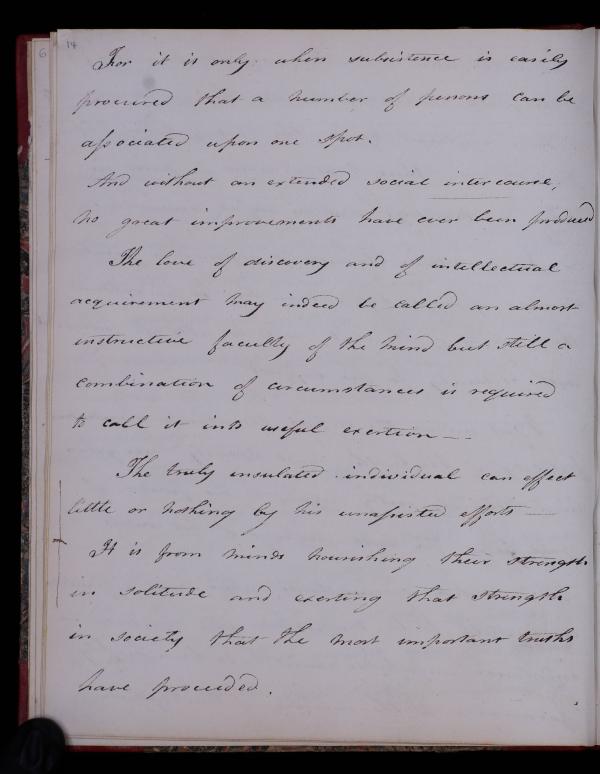 14
6
For it is only when subsistence is easily
procured that a number of persons can be
associated upon one spot.
And without an extended social intercourse,
no great improvements have ever been produced
The love of discovery and of intellectual
acquirement may indeed be called an almost
instructive faculty of the mind but still a
combination of circumstances is required
to call it into useful exertion —
The truly insulated individual can effect
little or nothing by his unassisted efforts —
It is from minds nourishing their strength
in solitude and exerting that strength
in society that the most important truths
have proceeded.